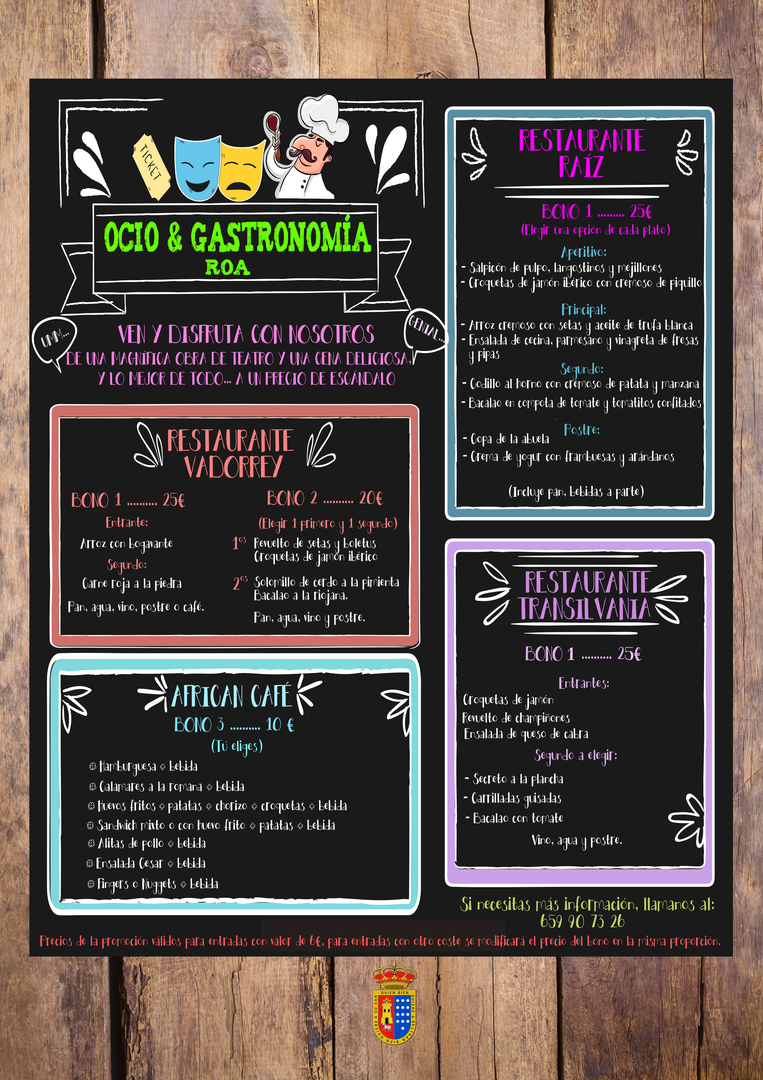 TICKET
OCIO & GASTRONOMÍA
ROA
UMM...
GENIAL...
VEN Y DISFRUTA CON NOSOTROS
DE UNA MAGNÍFICA OBRA DE TEATRO Y UNA CENA DELICIOSA,
Y LO MEJOR DE TODO... A UN PRECIO DE ESCÁNDALO
RESTAURANTE
VADORREY
BONO 1 .......... 25€
Entrante:
Arroz con bogavante
Segundo:
Carne roja a la piedra
Pan, agua, vino, postre o café.
BONO 2 .......... 20€
(Elegir 1 primero y 1 segundo)
1os Revuelto de setas y boletus
Croquetas de jamón ibérico
2os Solomillo de cerdo a la pimienta
Bacalao a la riojana.
Pan, agua, vino y postre.
AFRICAN CAFÉ
BONO 3 .......... 10 €
(Tú eliges)
Hamburguesa + bebida
Calamares a la romana + bebida
Huevos fritos + patatas + chorizo + croquetas + bebida
Sandwich mixto o con huevo frito + patatas + bebida
Alitas de pollo + bebida
Ensalada Cesar + bebida
Fingers o Nuggets + bebida
RESTAURANTE
RAÍZ
BONO 1 ......... 25€
(Elegir una opción de cada plato)
Aperitivo:
- Salpicón de pulpo, langostinos y mejillones
- Croquetas de jamón ibérico con cremoso de piquillo
Principal:
- Arroz cremoso con setas y aceite de trufa blanca
- Ensalada de cecina, parmesano y vinagreta de fresas
y pipas
Segundo:
- Codillo al horno con cremoso de patata y manzana
- Bacalao en compota de tomate y tomatitos confitados
Postre:
- Copa de la abuela
- Crema de yogur con frambuesas y arándanos
(Incluye pan, bebidas a parte)
RESTAURANTE
TRANSILVANIA
BONO 1 .......... 25€
Entrantes:
Croquetas de jamón
Revuelto de champiñones
Ensalada de queso de cabra
Segundo a elegir:
- Secreto a la plancha
- Carrilladas guisadas
- Bacalao con tomate
Vino, agua y postre.
Si necesitas más información, llamanos al:
659 90 73 26
Precios de la promoción válidos para entradas con valor de 6€, para entradas con otro coste se modificará el precio del bono en la misma proporción.